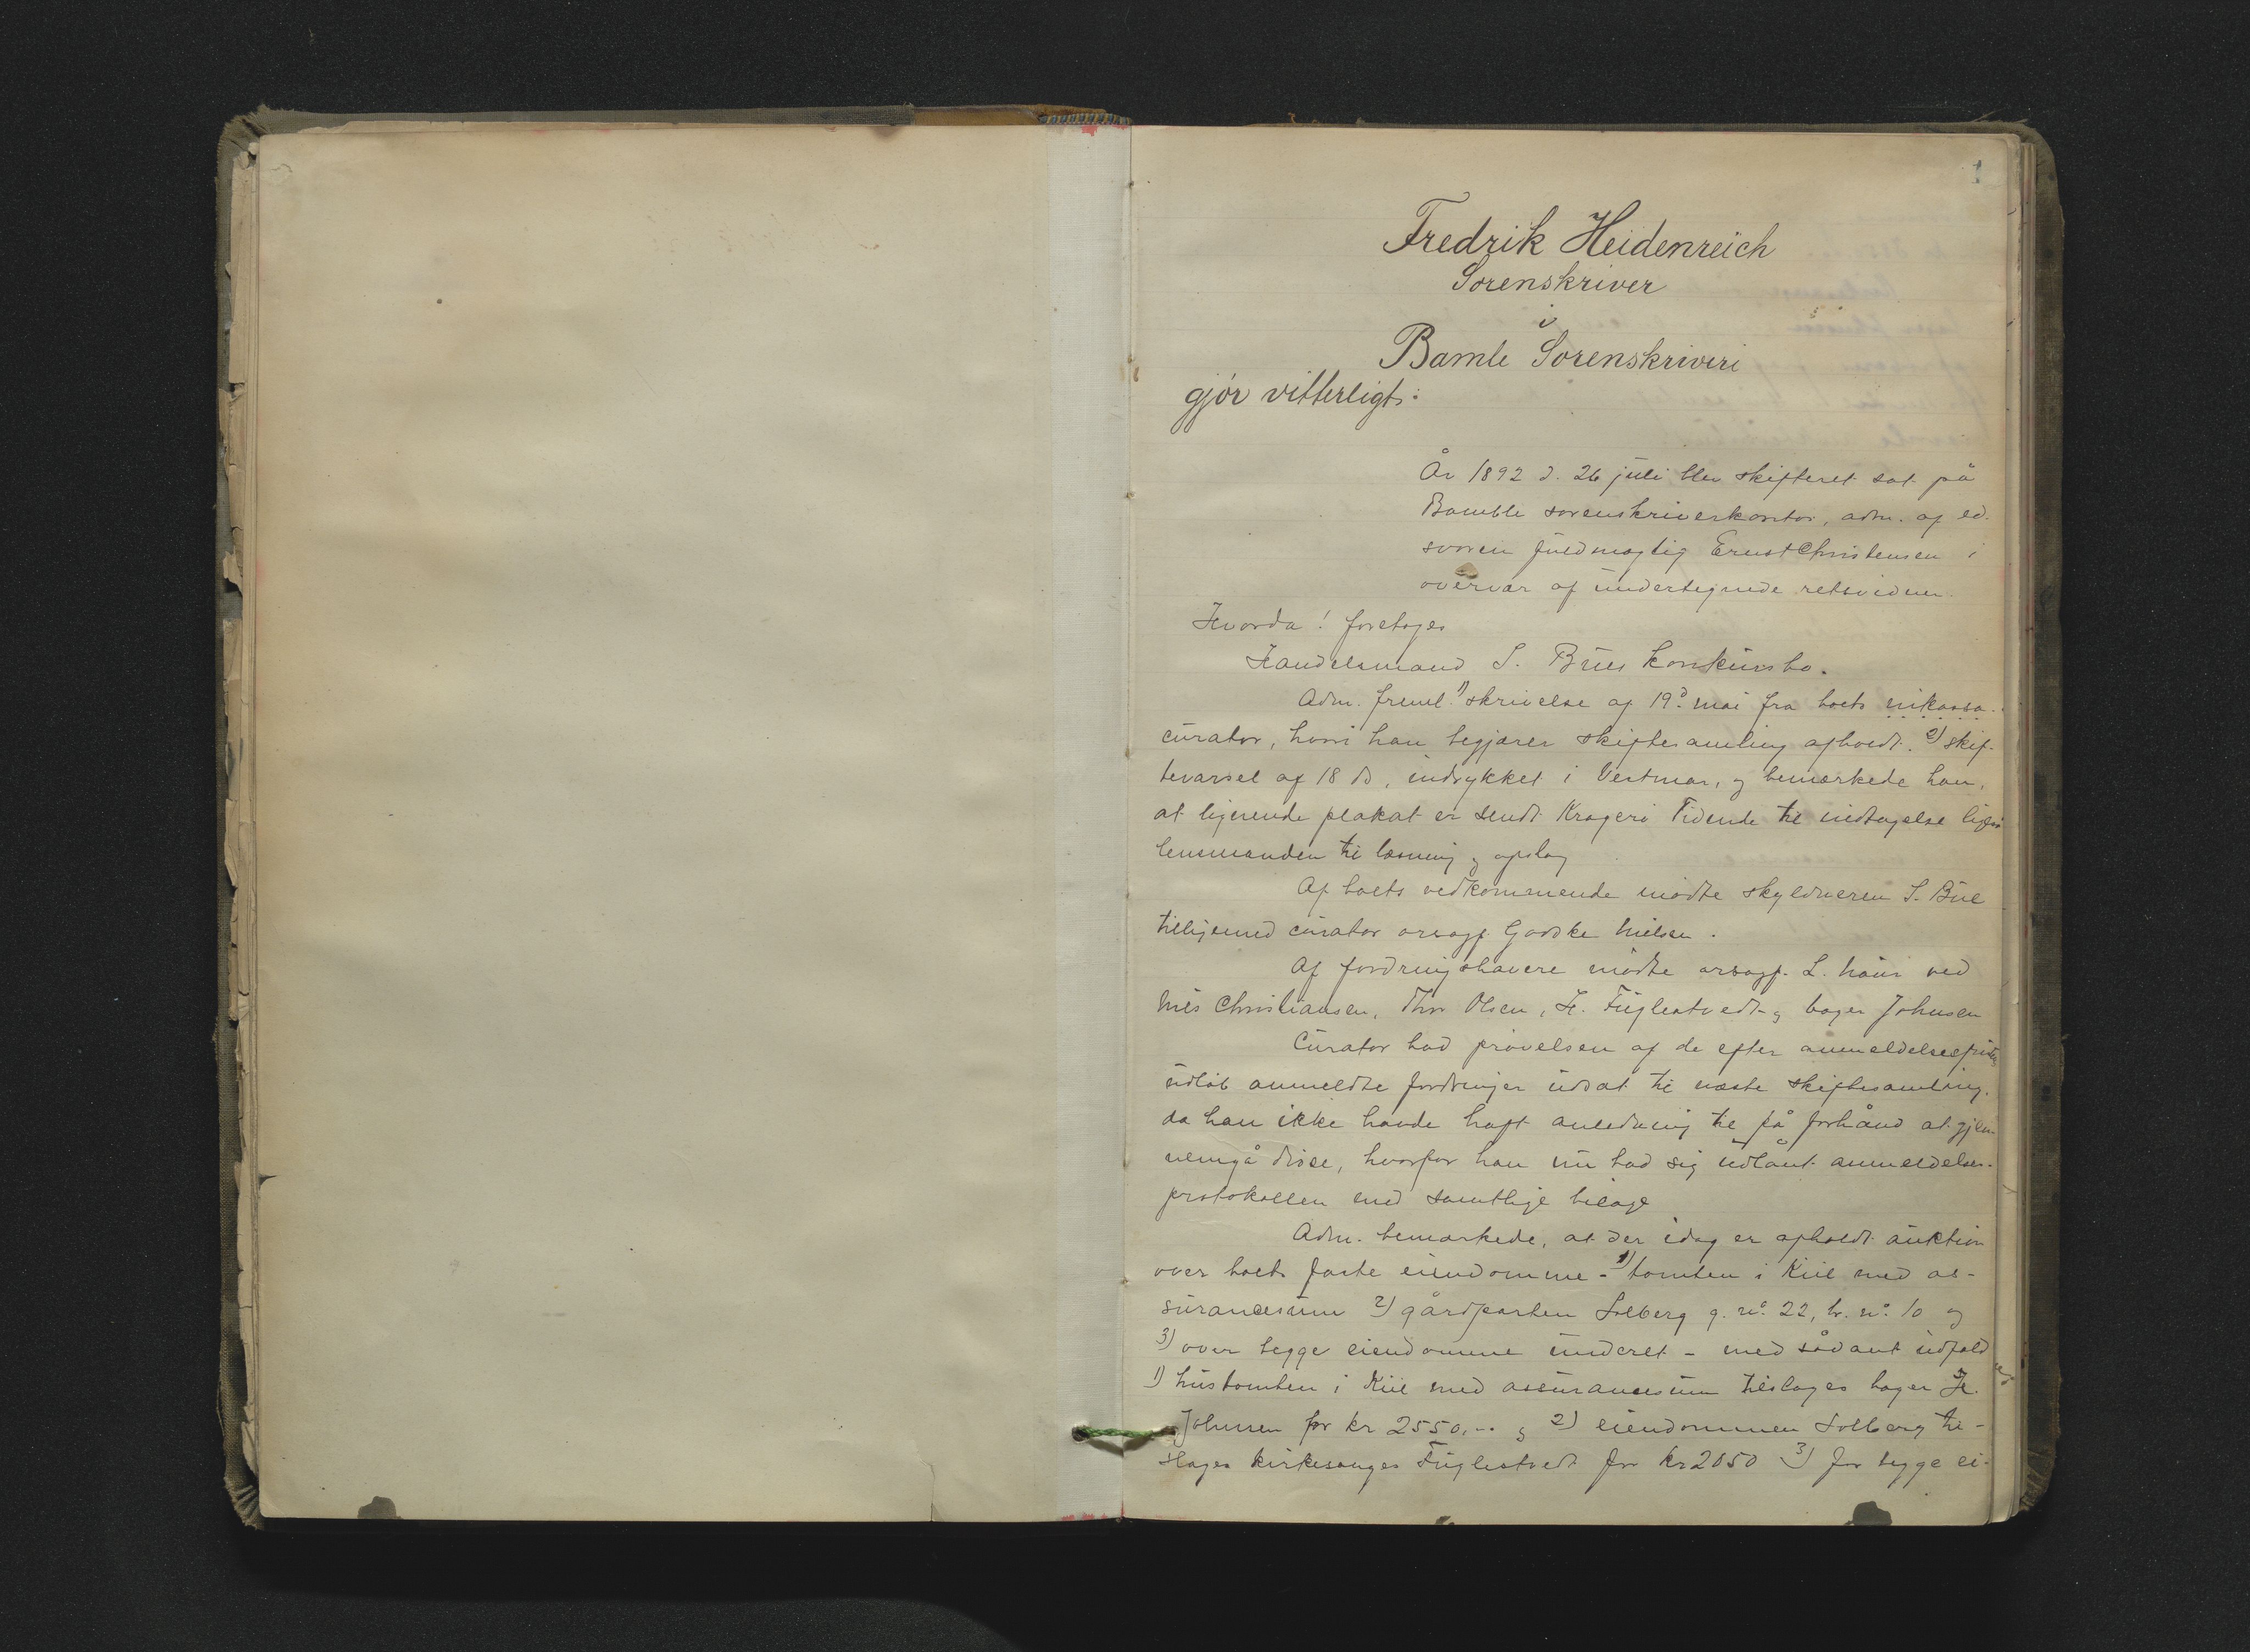 1
Fredrik Heidenreich
Sorenskriver
i
Bamle Sorenskriveri
gjör vitterligt:
År 1892 d. 26 juli blev skifteret sat på
Bamble sorenskriverkontor, adm. af ed.
svoren fuldmægtig Ernst Christensen i
overvær af undertegnede retsvidner.
Hvorda! foretoges
Handelsmand S. Bües konkursbo.
Adm. freml. 1) skrivelse af 19d. mai fra boets
curator, hvori han begjærer skiftesamling afholdt. 2) skif-
tevarsel af 18 ds, indrykket i Vestmar, og bemærkede han,
at lignende plakat er sendt Kragerö Tidende til indtagelse
lensmanden til læsning og opslag
Af boets vedkommende mödte skyldneren S. Büe
tilligemed curator orsagf. Gödke Nielsen.
Af fordringshavere mödte orsagf. L. ved
Nils Christiansen, Thor Olsen, H. Fuglestvedt og bager Johnsen
Curator bad prövelsen af de efter anmeldelsesfristens
udlöb anmeldte fordringer udsat til næste skiftesamling.
da han ikke havde haft anledning til på forhånd at gjen-
nemgå disse, hvorfor han nu bad sig udlånt anmeldelses-
protokollen med samtlige bilage
Adm. bemærkede, at der idag er afholdt auktion
over boets faste eiendomme - 1) tomten i Kiil med as-
surancesum 2) gårdparten Solberg g. no. 22, br. no. 10 og
3) over begge eiendomme underet - med sådant udfald
1) hustomten i Kiil med assurancesum tilslages bager H.
Johnsen for kr 2550,-- og 2) eiendommen Solberg til-
slages kirkesanger Fuglestvedt for kr 2050 3) for begge ei-